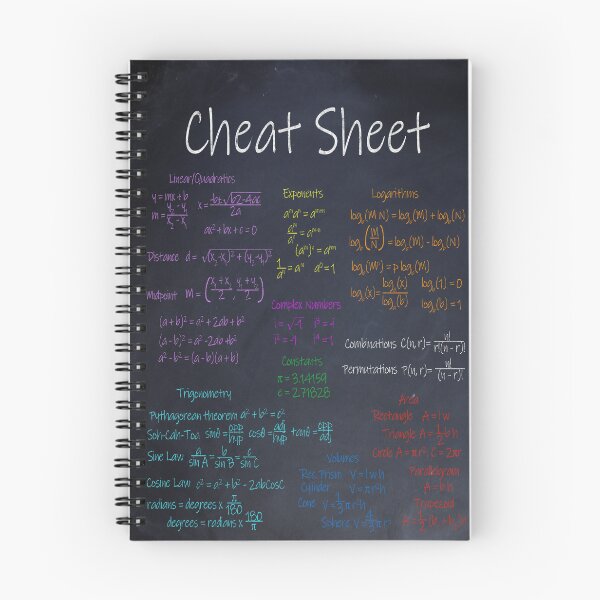 Cheat Sheet
Linear/Quadratics
y = mx + b
m = y₂ - y₁ / x₂ - x₁
x = -b±√b2-4ac / 2a
ax² + bx + c = 0
Distance d = √(x₂-x₁)² + (y₂-y₁)²
Midpoint M = (x₁ + x₂ / 2, y₁ + y₂ / 2)
(a+b)² = a² + 2ab + b²
(a-b)² = a² - 2ab + b²
a² - b² = (a-b)(a+b)
Exponents
(aᵐ)ⁿ = aᵐⁿ
a⁰ = 1
Complex Numbers
i = √-1
i² = -1
i⁴ = 1
Constants
π = 3.14159
e = 2.71828
Logarithms
log_b(M N) = log_b(M) + log_b(N)
log_b(M/N) = log_b(M) - log_b(N)
log_b(Mᵖ) = p log_b(M)
log_b(1) = 0
log_b(b) = 1
Combinations C(n, r) = n! / r!(n-r)!
Permutations P(n, r) = n! / (n-r)!
Trigonometry
Pythagorean theorem a² + b² = c²
Soh-Cah-Toa sinθ = opp/hyp cosθ = adj/hyp tanθ = opp/adj
Sine Law a/sin A = b/sin B = c/sin C
Cosine Law c² = a² + b² - 2abCosC
radians = degrees x π/180
degrees = radians x 180/π
Volumes
Rec. Prism V = l w h
Cylinder V = πr²h
Cone V = 1/3 πr²h
Sphere V = 4/3 πr³
Area
Rectangle A = l w
Triangle A = 1/2 b h
Circle A = πr², C = 2πr
Parallelogram
A = b h
Trapezoid